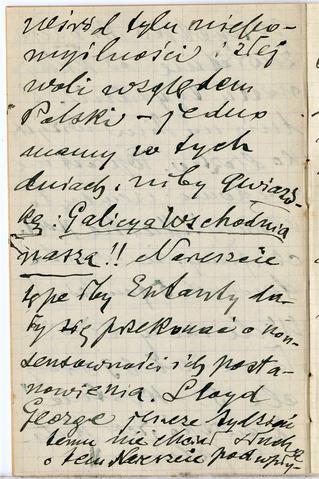 wśród tylu niepo-
myślności i złej
woli względem
Polski – jedno
mamy w tych
dniach, niby gwiazd-
kę: Galicya Wschodnia
nasza!! Nareszcie
tępe łby Ententy da-
ły się przekonać o non-
sensowności ich posta-
nowienia. Lloyd
George jeszcze tydzień
temu nie chciał słuchać
o tem. Nareszcie pod wpły-